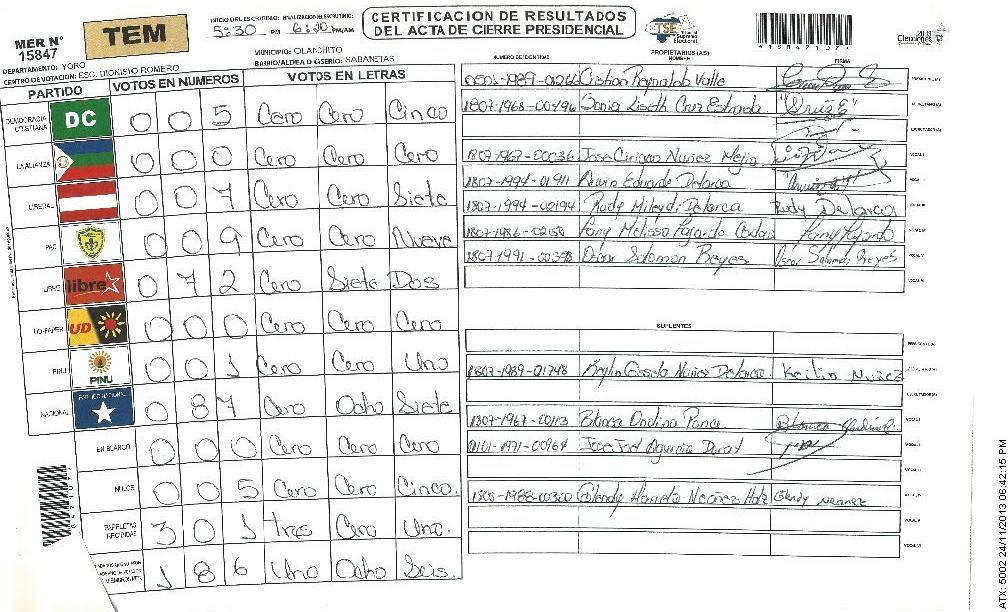 MER N° 15847
TEM
INICIO DEL ESCRUTINIO: 5:30 PM FINALIZACION ESCRUTINIO: PM/AM
CERTIFICACION DE RESULTADOS
DEL ACTA DE CIERRE PRESIDENCIAL
TSE Tribunal Supremo Electoral
Elecciones
DEPARTAMENTO: YORO
MUNICIPIO: OLANCHITO
CENTRO DE VOTACION: ESC. DIONISIO ROMERO
BARRIO/ALDEA O CASERIO: SABANETAS
PARTIDO VOTOS EN NUMEROS VOTOS EN LETRAS
DEMOCRACIA CRISTIANA DC 0 0 5 Cero Cero Cinco
LA ALIANZA 0 0 0 Cero Cero Cero
LIBERAL 0 0 7 Cero Cero Siete
PAC 0 0 9 Cero Cero Nueve
LIBRE libre 0 7 2 Cero Siete Dos
UD-FAPER UD 0 0 0 Cero Cero Cero
PINU PINU 0 0 1 Cero Cero Uno
NACIONAL 0 8 7 Cero Ocho Siete
EN BLANCO 0 0 0 Cero Cero Cero
NULOS 0 0 5 Cero Cero Cinco.
PAPELETAS RECIBIDAS 3 0 1 tres Cero Uno.
1 8 6 Uno Ocho Seis.
NUMERO DE IDENTIDAD PROPIETARIOS (AS) NOMBRE FIRMA
Cristian Reynaldo Valle
1807-1968-00496 Sonia Liseth Cruz Estrada
1807-1967-00036 Jose Nuñez Mejia
1807-1994-01911 Eduardo Delarca
1807-1994-02194 Rudy Mileydi Delarca Rudy Delarca
1807-1986-02158 Fany Melissa Fajardo Fany Fajardo
1807-1991-00398 Oscar Solomon Reyes Oscar Salomon Reyes
SUPLENTES
1807-1989-01748 Gissela Nuñez Delarca Keilin Nuñez
1807-1967-00113 Blanca Ondina Ponce
0101-1971-00964 Jose Joel
1805-1988-00300
ATX: 5002 24/11/2013 06:42:15 PM